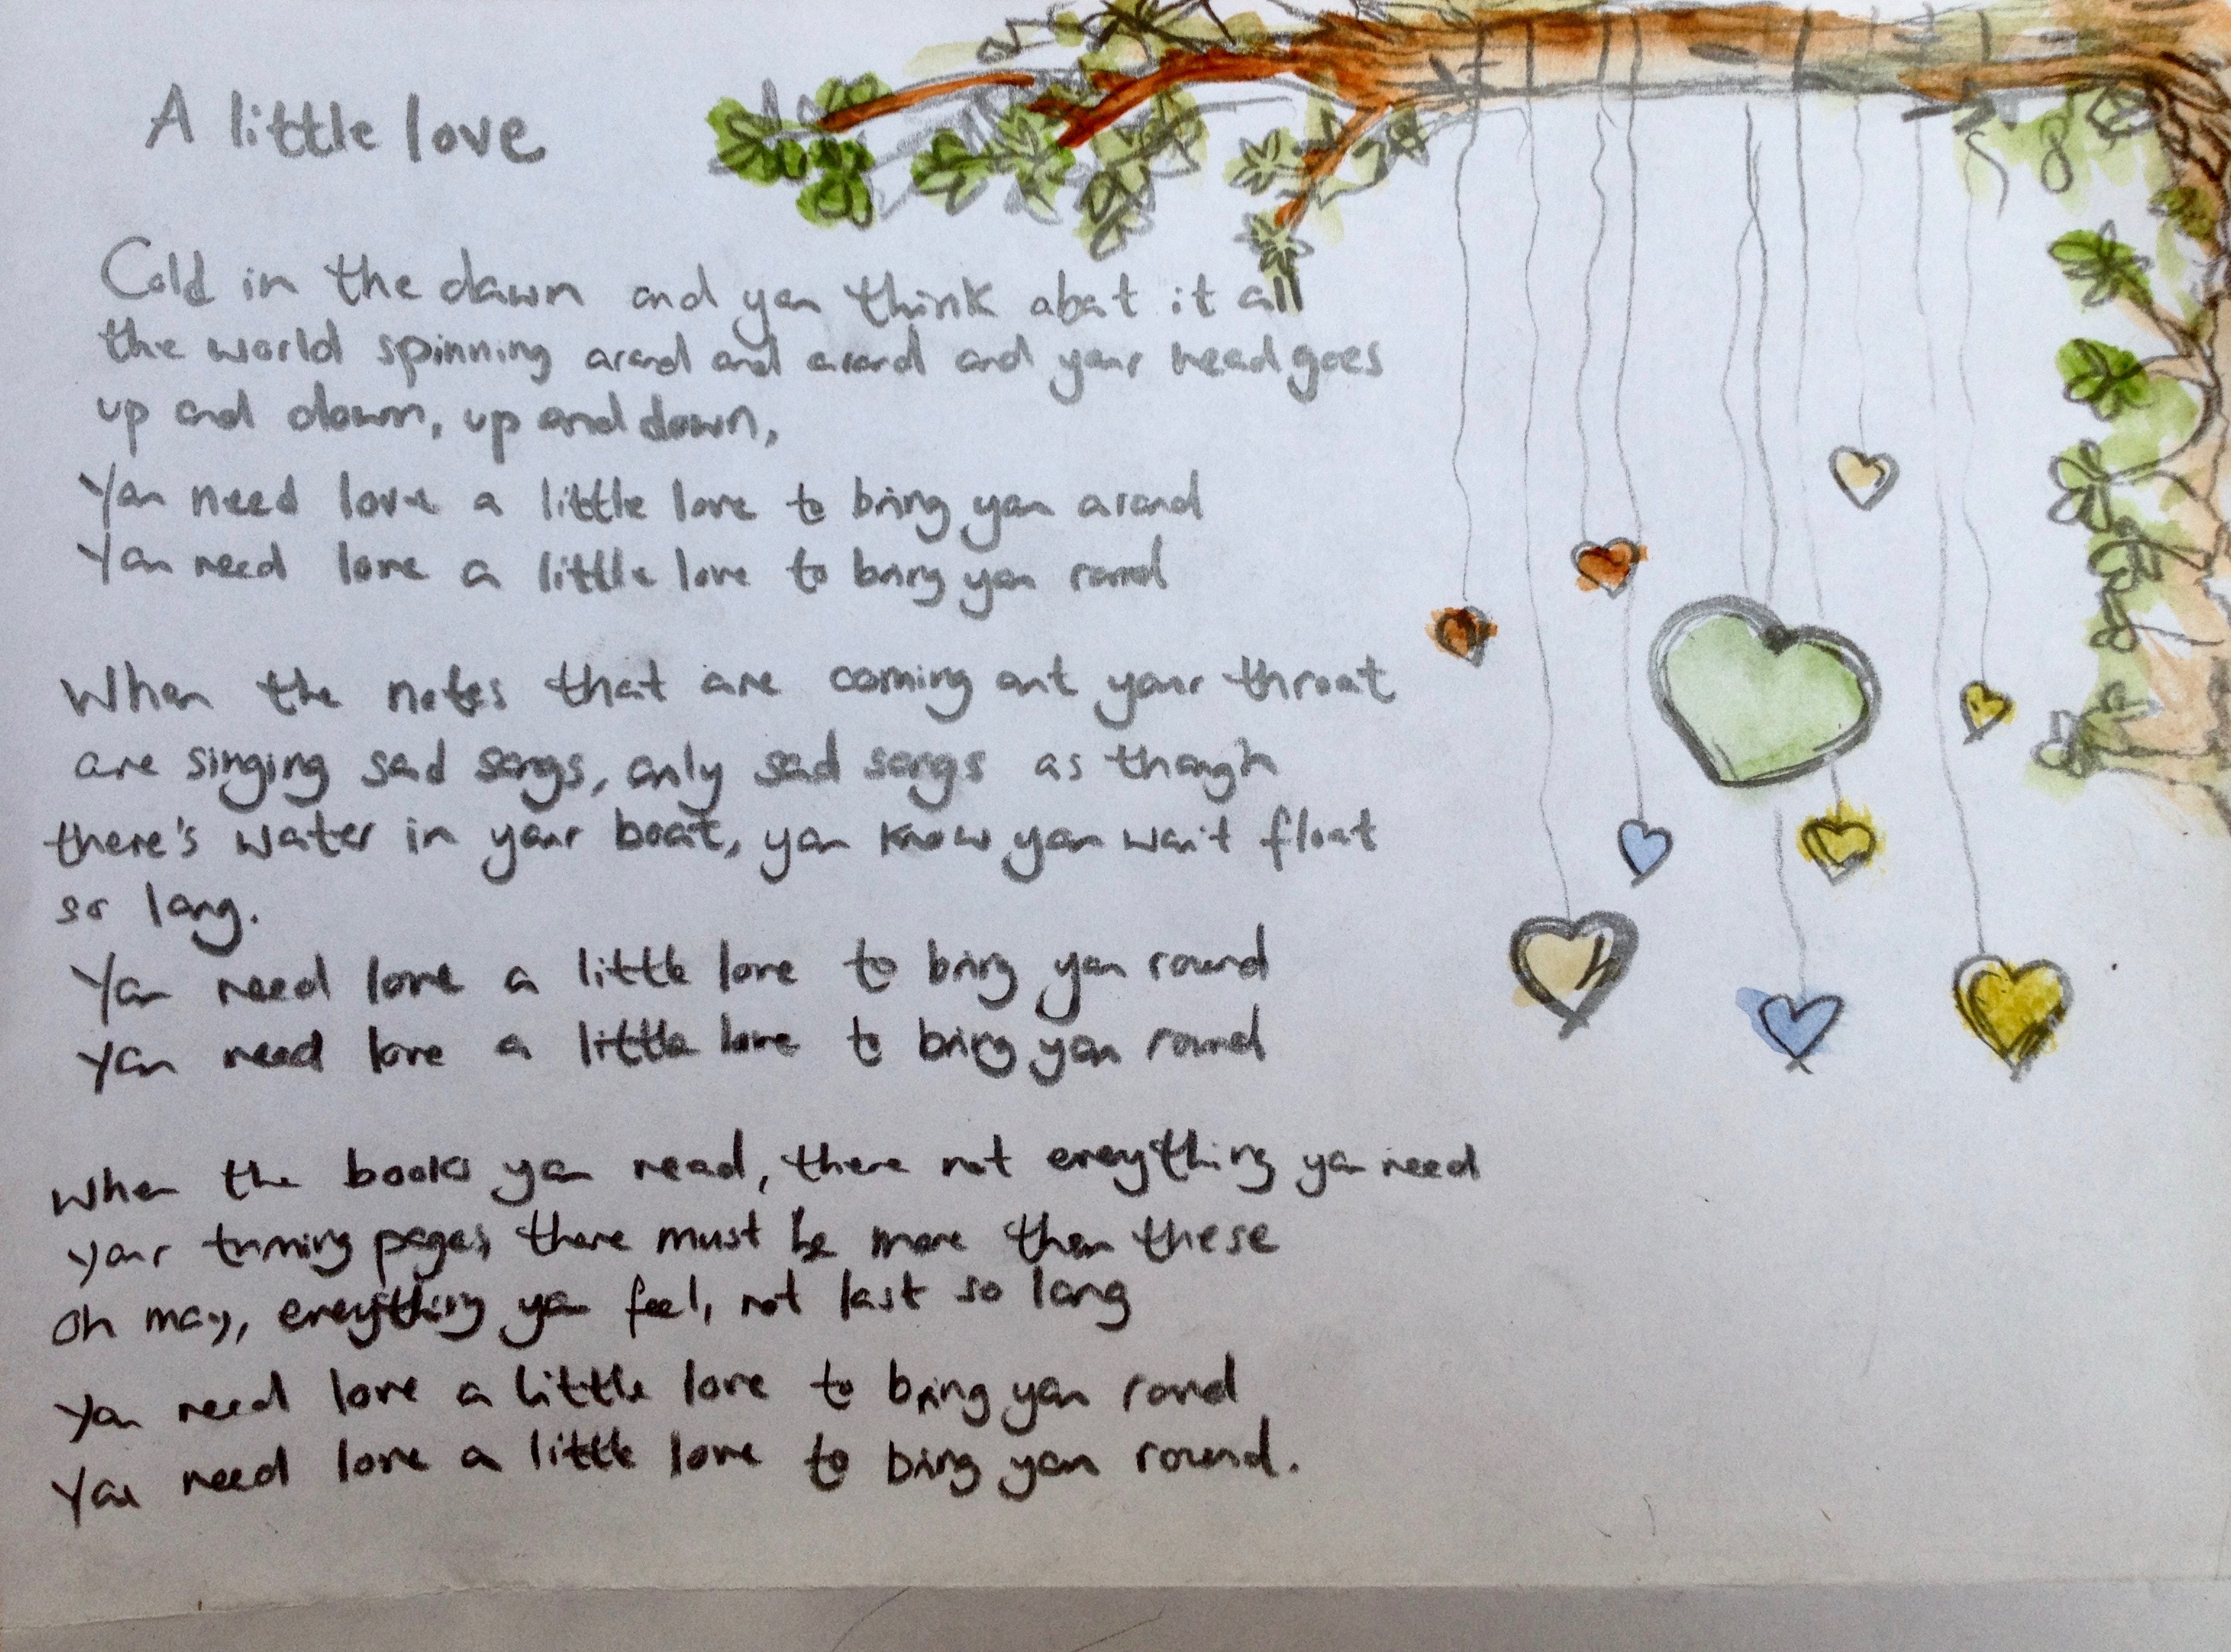 A little love
Cold in the dawn and you think about it all
the world spinning around and around and your head goes
up and down, up and down,
You need love a little love to bring you around
You need love a little love to bring you round
When the notes that are coming out your throat
are singing sad songs, only sad songs as though
there's water in your boat, you know you won't float
so long.
You need love a little love to bring you round
You need love a little love to bring you round
When the books you read, there not everything you need
your turning pages there must be more than these
Oh may, everything you feel, not last so long
You need love a little love to bring you round
You need love a little love to bring you round.